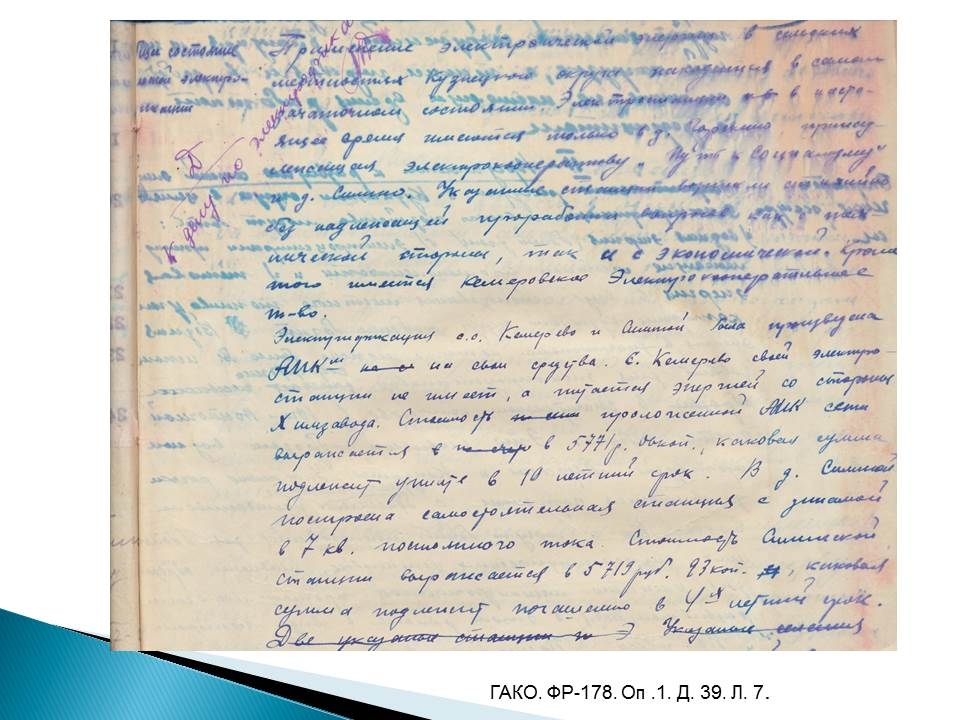 состояние
Применение электрической энергии в сельских
местностях Кузнецкого округа находится в самом
зачаточном состоянии. Электростанции в насто-
ящее время имеются только в д. принад-
лежащая электрокооперативу "Путь к социализму"
и д. Силино. Указанные станции возникли стихийно
без надлежащей проработки вопросов как с тех-
нической стороны, так и с экономической. Кроме
того имеется Кемеровское Электрокооперативное
т-во.
К делу по электрофикации
Электрификация с.о. Кемерево и Силиной была произведена
АИК на свои средства. С. Кемерево своей электро-
станции не имеет, а питается энергией со стороны
Химзавода. Стоимость проложенной АИК сети
выражается в 5771 р. коп., каковая сумма
подлежит уплате в 10 летний срок. В д. Силиной
построена самостоятельная станция с динамой
в 7 кв. постоянного тока. Стоимость Силинской
станции выражается в 5719 руб. 93 коп. , каковая
сумма подлежит погашению в 4х летний срок.
Две указанные станции Указанные
ГАКО. ФР-178. Оп .1. Д. 39. Л. 7.